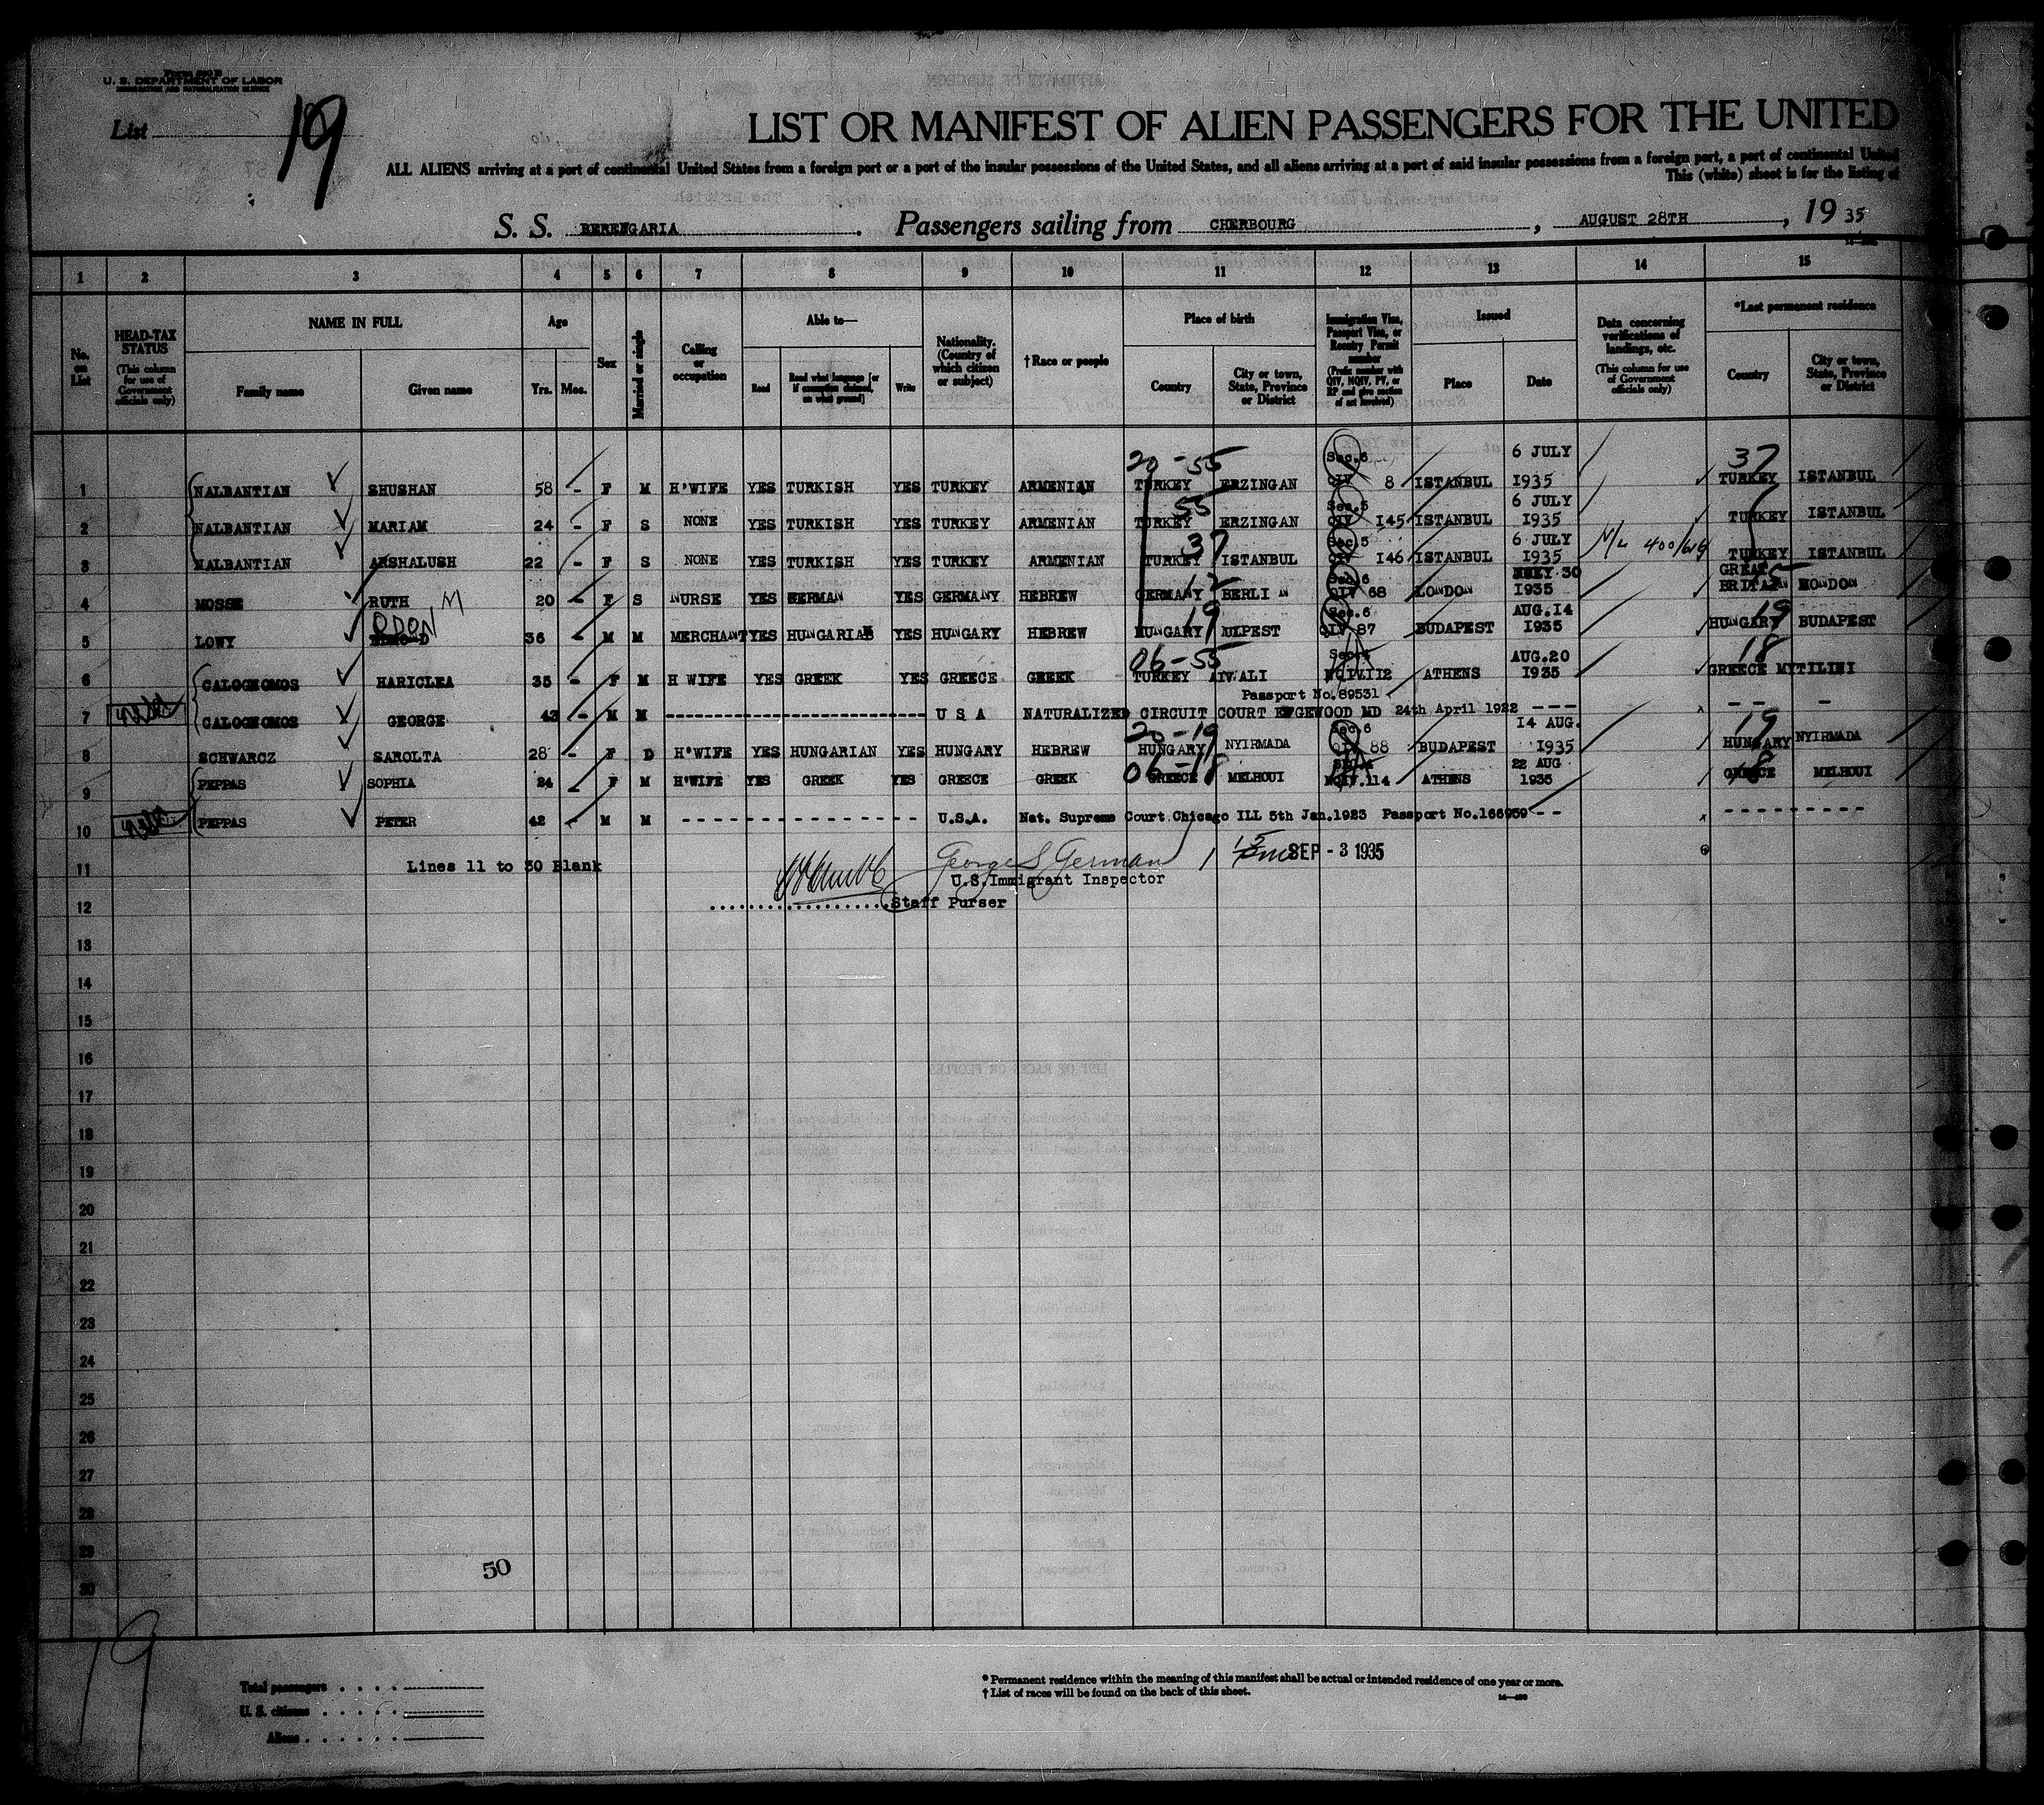 Form 500 B
U. S. DEPARTMENT OF LABOR
IMMIGRATION AND NATURALIZATION SERVICE
List 19
LIST OR MANIFEST OF ALIEN PASSENGERS FOR THE UNITED
ALL ALIENS arriving at a port of continental United States from a foreign port or a port of the insular possessions of the United States, and all aliens arriving at a port of said insular possessions from a foreign port, a port of continental United
This (white) sheet is for the listing of
S. S. BERENGARIA. Passengers sailing from CHERBOURG, AUGUST 28TH, 1935
1 2 3 4 5 6 7 8 9 10 11 12 13 14 15
No. on List
HEAD-TAX STATUS (This column for use of Government officials only)
NAME IN FULL
Family name Given name
Age
Yrs. Mos.
Sex
Married or single
Calling or occupation
Able to—
Read Read what language [or if exemption claimed, on what ground] Write
Nationality. (Country of which citizen or subject)
†Race or people
Place of birth
Country City or town, State, Province or District
Immigration Visa, Passport Visa, or Reentry Permit number (Prefix number with QIV, NQIV, PV, or RP and give section of act involved)
Issued
Place Date
Data concerning verifications of landings, etc. (This column for use of Government officials only)
*Last permanent residence
Country City or town, State, Province or District
20-55 Sec.6 6 JULY 37
1 NALBANTIAN SHUSHAN 58 - F M H'WIFE YES TURKISH YES TURKEY ARMENIAN TURKEY ERZINGAN QIV 8 ISTANBUL 1935 TURKEY ISTANBUL
55 Sec.5 6 JULY
2 NALBANTIAN MARIAM 24 - F S NONE YES TURKISH YES TURKEY ARMENIAN TURKEY ERZINGAN QIV 145 ISTANBUL 1935 TURKEY ISTANBUL
37 Sec.5 6 JULY
3 NALBANTIAN ARSHALUSH 22 - F S NONE YES TURKISH YES TURKEY ARMENIAN TURKEY ISTANBUL QIV 146 ISTANBUL 1935 TURKEY ISTANBUL
12 Sec.6 MAY 30 GREAT
4 MOSSE RUTH M 20 - F S NURSE YES GERMAN YES GERMANY HEBREW GERMANY BERLIN QIV 68 LONDON 1935 BRITAIN LONDON
ODON 19 Sec.6 AUG.14 19
5 LOWY 36 - M M MERCHANT YES HUNGARIAN YES HUNGARY HEBREW HUNGARY UJPEST QIV 87 BUDAPEST 1935 HUNGARY BUDAPEST
06-55 Sec.4 AUG.20 18
6 CALOGHOMOS HARICLEA 35 - F M H WIFE YES GREEK YES GREECE GREEK TURKEY AIVALI NQIV.112 ATHENS 1935 GREECE MYTILINI
Passport No.89531
7 CALOGHOMOS GEORGE 43 - M M - - - U S A NATURALIZED CIRCUIT COURT EDGEWOOD MD 24th April 1922 - - - - - -
20-19 Sec.6 14 AUG. 19
8 SCHWARCZ SAROLTA 28 - F D H'WIFE YES HUNGARIAN YES HUNGARY HEBREW HUNGARY NYIRMADA QIV 88 BUDAPEST 1935 HUNGARY NYIRMADA
06-18 SEC.4 22 AUG 18
9 PEPPAS SOPHIA 24 - F M H'WIFE YES GREEK YES GREECE GREEK GREECE MELHOUI NQIV.114 ATHENS 1935 GREECE MELHOUI
10 PEPPAS PETER 42 - M M - - - U.S.A. Nat. Supreme Court Chicago ILL 5th Jan.1923 Passport No.166959 - - - - -
11 Lines 11 to 30 Blank George S German SEP - 3 1935
U.S.Immigrant Inspector
12 Staff Purser
13
14
15
16
17
18
19
20
21
22
23
24
25
26
27
28
29
30
50
19
Total passengers
U. S. citizens
Aliens
* Permanent residence within the meaning of this manifest shall be actual or intended residence of one year or more.
† List of races will be found on the back of this sheet.